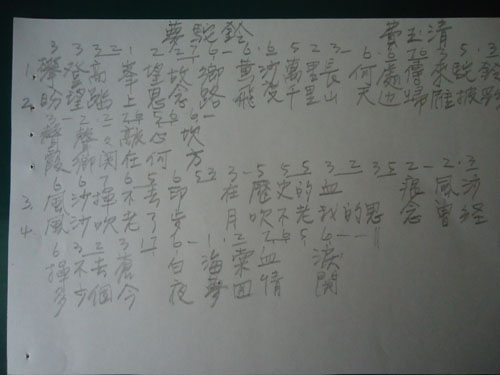 夢駝鈴 費玉清
3 3 3 2 1 2 2 7 6 - 6 . 6 5 2 3 - 6 3 5 . 3
1. 攀登高峯望故鄉 黃沙萬里長 何處傳來駝鈴
2. 盼望踏上思念路 飛 千里山 天邊歸雁披殘
3 - 2
聲聲敲心坎
霞鄉関在何方
6 6 7 6 5 6 53 3 - 5 5 5 3 2 35 2 - 2 . 3
3. 風沙揮不去印 在歷史的血 痕風沙
4. 風沙吹老了歲 月吹不老我的思 念曾經
6 3 2 3 17 6 - 1 . 2 5 6 - - -
揮不去蒼 白海棠血 淚
多少個今 夜夢回情 開